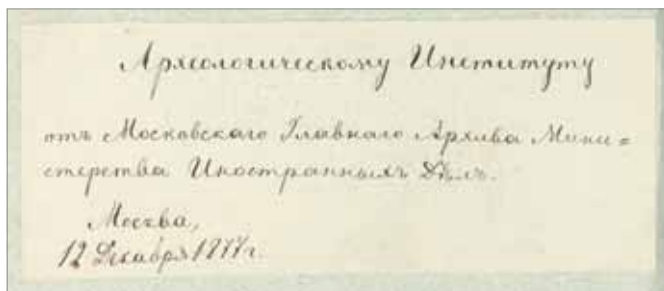 Археологическому Институту
отъ Московскаго Главнаго Архива Мини=
стерства Иностранныхъ Дѣлъ.
Москва,
12 Декабря 1877 г.